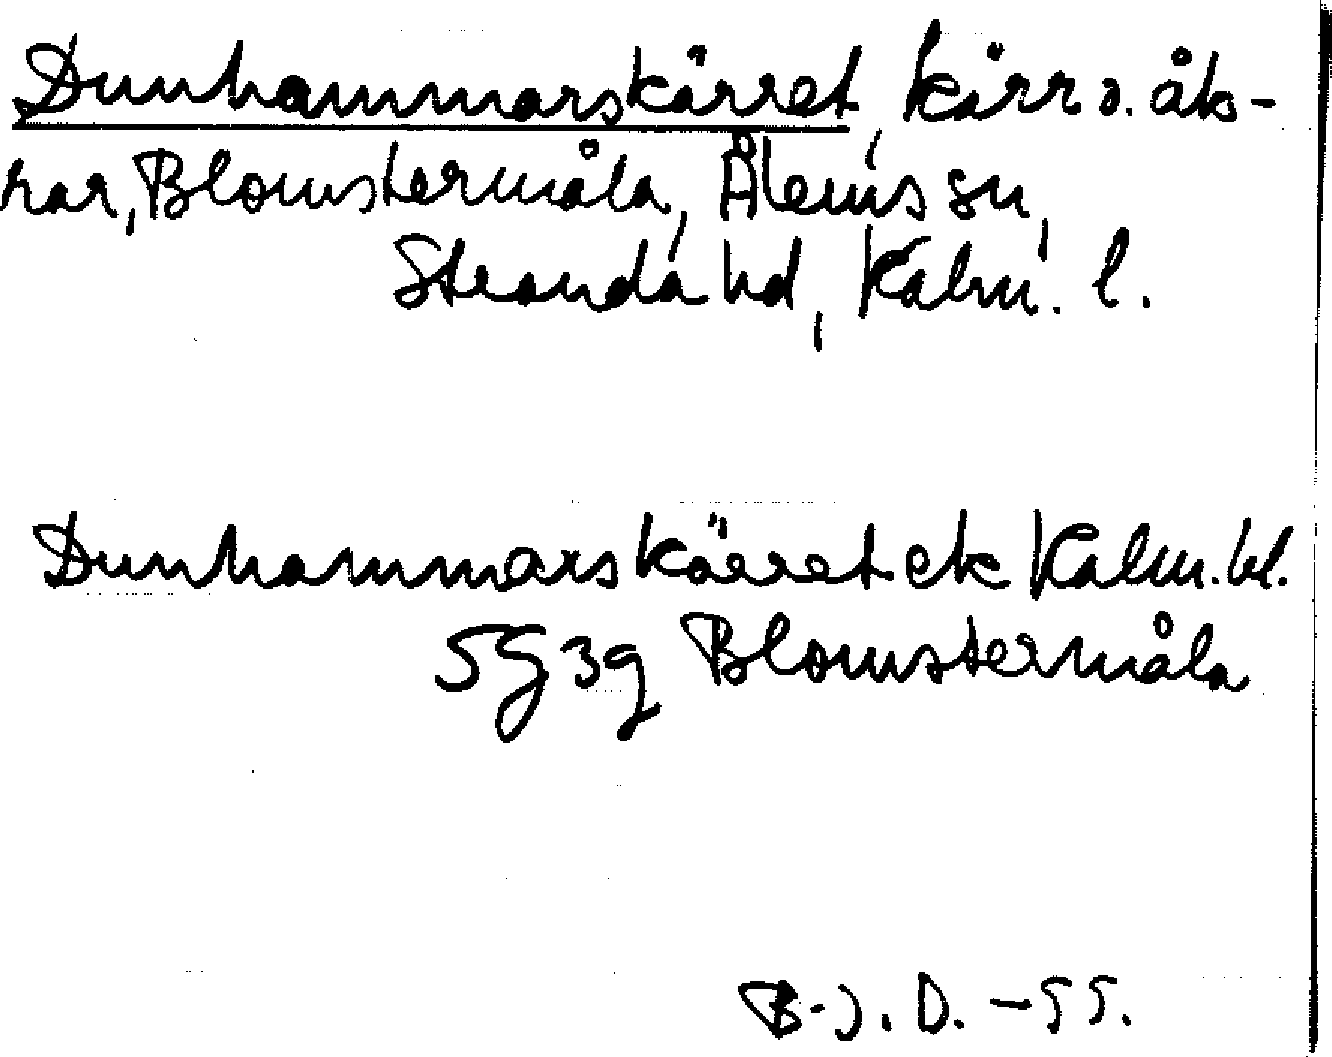 Dunhammarskärret, kärr o. åk-
rar, Blomstermåla, Ålems sn,
Stranda hd, Kalm. l.
Dunhammarskärret ek Kalm. bl.
5G 3g Blomstermåla
B-J. D. -55.